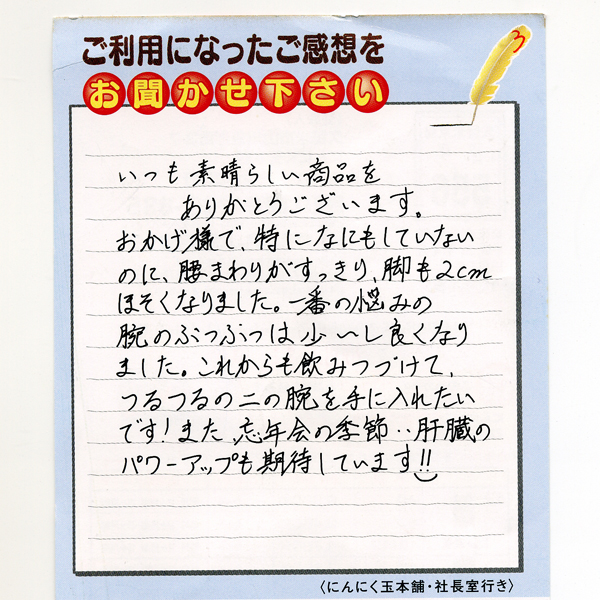 ご利用になったご感想を
お聞かせ下さい
3
いつも素晴らしい商品を
ありがとうございます。
おかげ様で、特になにもしていない
のに、腰まわりがすっきり、脚も2cm
ほそくなりました。一番の悩みの
腕のぶつぶつは少〜し良くなり
ました。これからも飲みつづけて、
つるつるの二の腕を手に入れたい
です!また、忘年会の季節‥肝臓の
パワーアップも期待しています!!
〈にんにく玉本舗・社長室行き〉